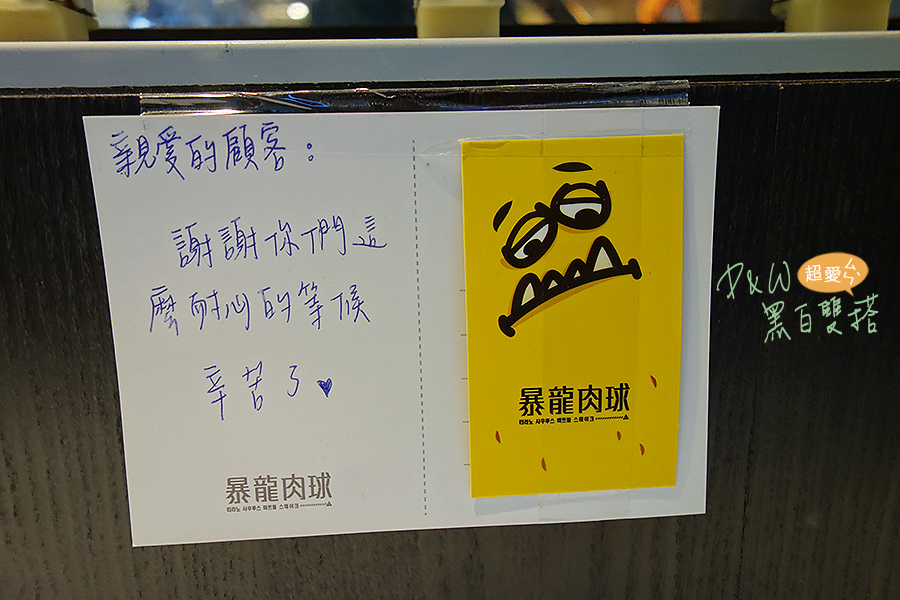 親愛的顧客:
謝謝你們這
麼耐心的等候
辛苦了♥
暴龍肉球
티라노 사우루스 미트볼 스테이크
暴龍肉球
티라노 사우루스 미트볼 스테이크
P&W
超愛ㄙㄢ
黑白雙搭